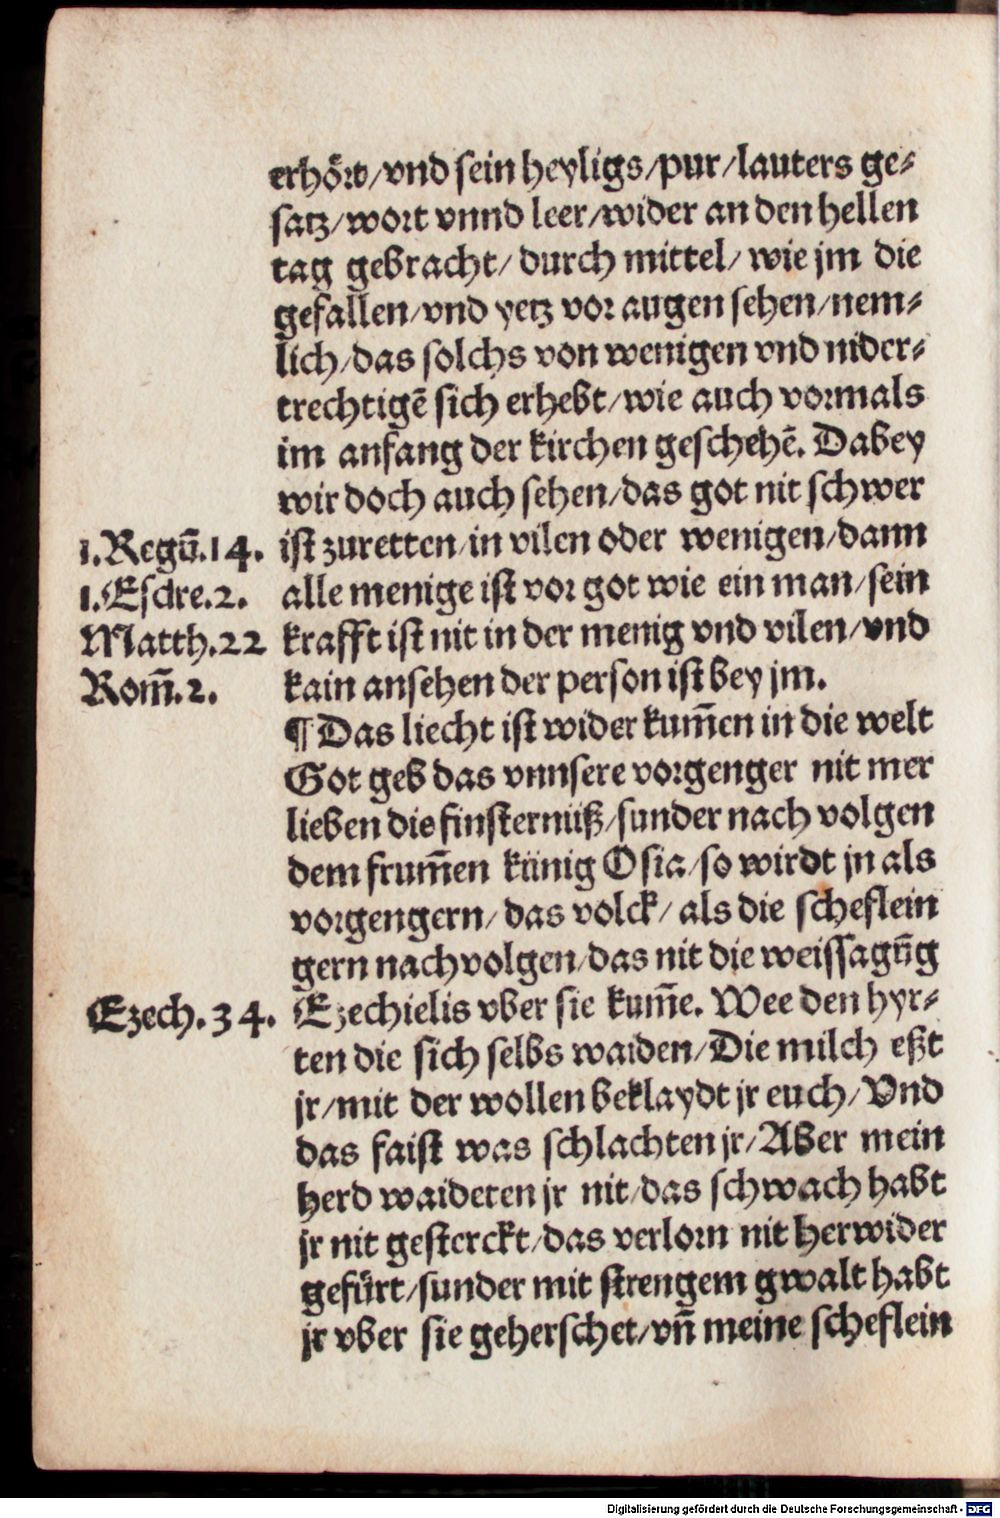 erhoͤrt/vnd sein heyligs/pur/lauters ge⸗
satz/wort vnnd leer/wider an den hellen
tag gebracht/ durch mittel/ wie jm die
gefallen/vnd yetz vor augen sehen/nem⸗
lich/das solchs von wenigen vnd nider⸗
trechtigẽ sich erhebt/wie auch vormals
im anfang der kirchen geschehẽ. Dabey
wir doch auch sehen/das got nit schwer
1.Regũ.14. ist zuretten/in vilen oder wenigen/dann
1.Esdre.2. alle menige ist vor got wie ein man/sein
Matth.22 krafft ist nit in der menig vnd vilen/vnd
Rom̃.2. kain ansehen der person ist bey jm.
¶ Das liecht ist wider kum̃en in die welt
Got geb das vnnsere vorgenger nit mer
lieben die finsternüß/sunder nach volgen
dem frum̃en künig Osia/so wirdt jn als
vorgengern/ das volck/ als die scheflein
gern nachvolgen/das nit die weissagũg
Ezech.34. Ezechielis vber sie kum̃e. Wee den hyr⸗
ten die sich selbs waiden/Die milch eßt
jr/mit der wollen beklaydt jr euch/Vnd
das faist was schlachten jr/Aber mein
herd waideten jr nit/das schwach habt
jr nit gesterckt/das verlorn nit herwider
gefürt/sunder mit strengem gwalt habt
jr vber sie geherschet/vñ meine scheflein
Digitalisierung gefördert durch die Deutsche Forschungsgemeinschaft - DFG